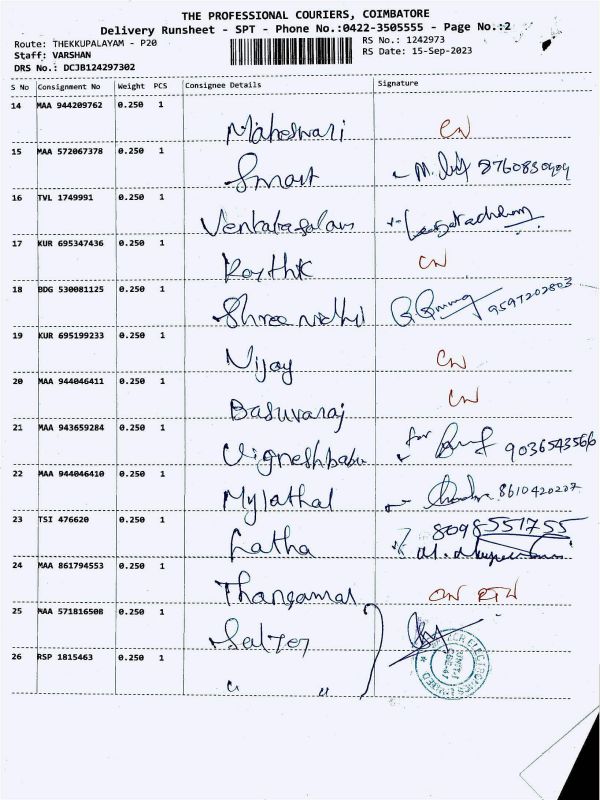 THE PROFESSIONAL COURIERS, COIMBATORE
Delivery Runsheet - SPT - Phone No.:0422-3505555 - Page No.:2
Route: THEKKUPALAYAM - P20 RS No.: 1242973
Staff: VARSHAN RS Date: 15-Sep-2023
DRS No.: DCJB124297302
S No Consignment No Weight PCS Consignee Details Signature
14 MAA 944209762 0.250 1
Maheswari CN
15 MAA 572067378 0.250 1
Smart 8760830909
16 TVL 1749991 0.250 1
Venkatasalam
17 KUR 695347436 0.250 1
Karthik CN
18 BDG 530081125 0.250 1
Shree nidhi 9597202803
19 KUR 695199233 0.250 1
Vijay CN
20 MAA 944046411 0.250 1
Basuvaraj CN
21 MAA 943659284 0.250 1
Vigneshbabu for 9036543566
22 MAA 944046410 0.250 1
Mylathal 8610420207
23 TSI 476620 0.250 1
8098551755
Latha
24 MAA 861794553 0.250 1
Thangamal CN RTN
25 MAA 571816508 0.250 1
Salzer
26 RSP 1815463 0.250 1
" "